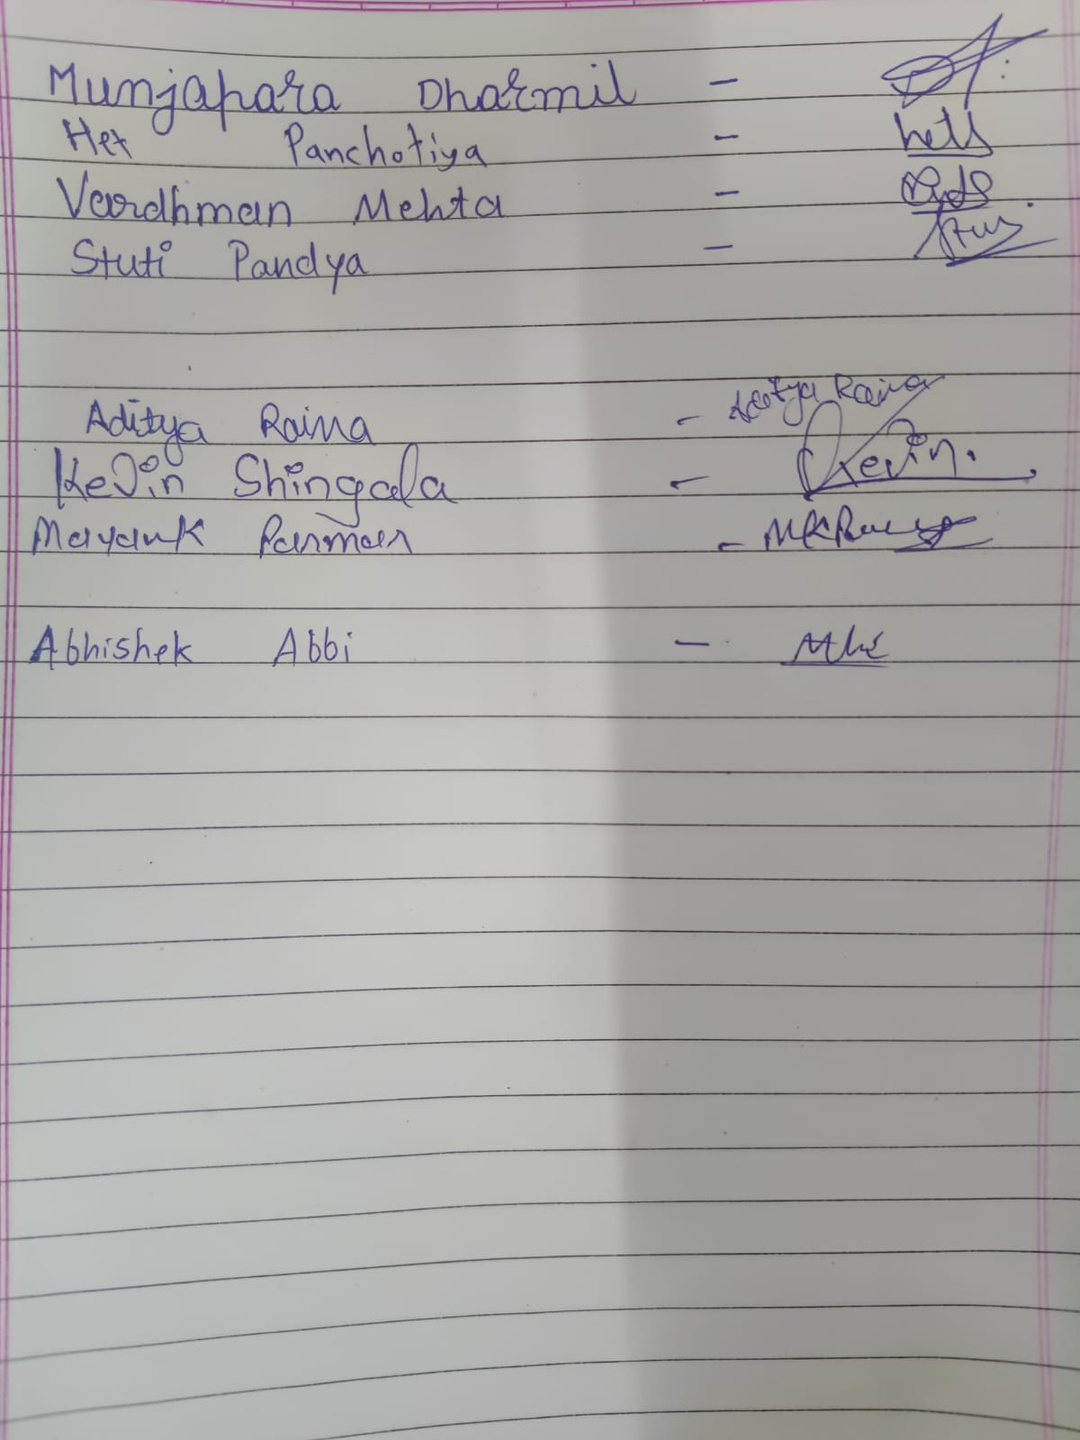 Munjapara Dharmil -
Het Panchotiya - hett
Vardhman Mehta -
Stuti Pandya -
Aditya Raina - Aditya Raina
Kevin Shingala - Kevin.
Mayank Parmar -
Abhishek Abbi -